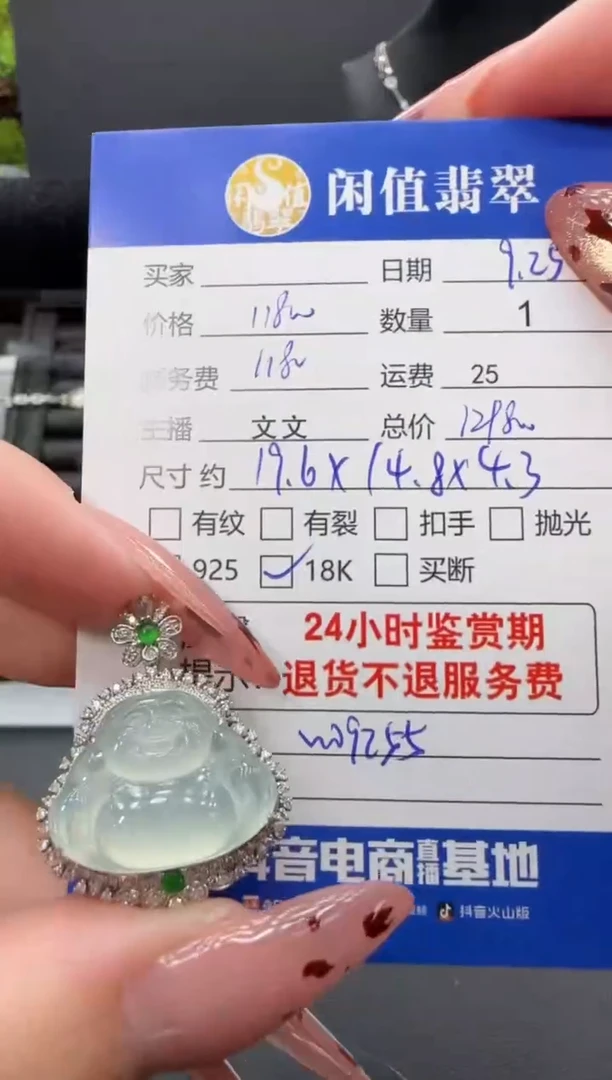 闲值翡翠
买家 日期 9.25
价格 118w 数量 1
务费 118w 运费 25
主播 文文 总价 1298w
尺寸 约 19.6x14.8x4.3
有纹 有裂 扣手 抛光
925 18K 买断
24小时鉴赏期
提示: 退货不退服务费
W09255
抖音电商直播基地
抖音火山版